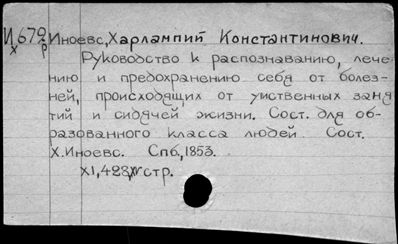 И 672 Иноевс, Харлампий Константинович.
х р
Руководство к распознаванию, лече-
нию и предохранению себя от болез-
ней, происходящих от умственных заня
тий и сидячей жизни. Сост. для об-
разованного класса людей Сост.
Х. Иноевс. Спб, 1853.
XI, 428, стр.